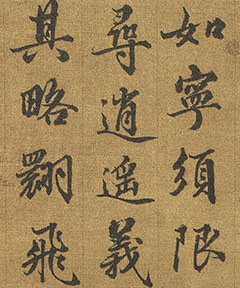 如寧須限
尋逍遥義
其略翾飛